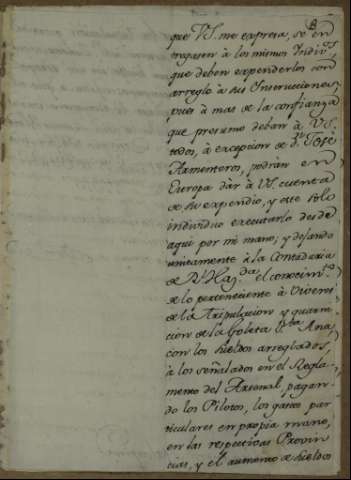 que V.S. me expresa, se en
treguen à los mismos Individ.s
que deben expenderlos con
arreglo à sus Instrucciones,
pues à mas de la confianza
que presumo deban à V.S.
todos, à excepcion de D.n Josè
Armenteros, podràn en
Europa dàr à V.S. cuenta
de su expendio, y este solo
individuo executarlo desde
aqui por mi mano; y dejando
unicamente à la Contaduria
de R.l Haz.da el conocim.to
de lo perteneciente à Viveres
de la Tripulacion y guarni
cion de la Goleta S.ta Ana,
con los sueldos arreglados,
à los señalados en el Regla-
mento del Arsenal, pagan-
do los Pilotos, los gastos par
ticulares en propia mano,
en las respectivas Provin
cias, y el aumento de sueldos